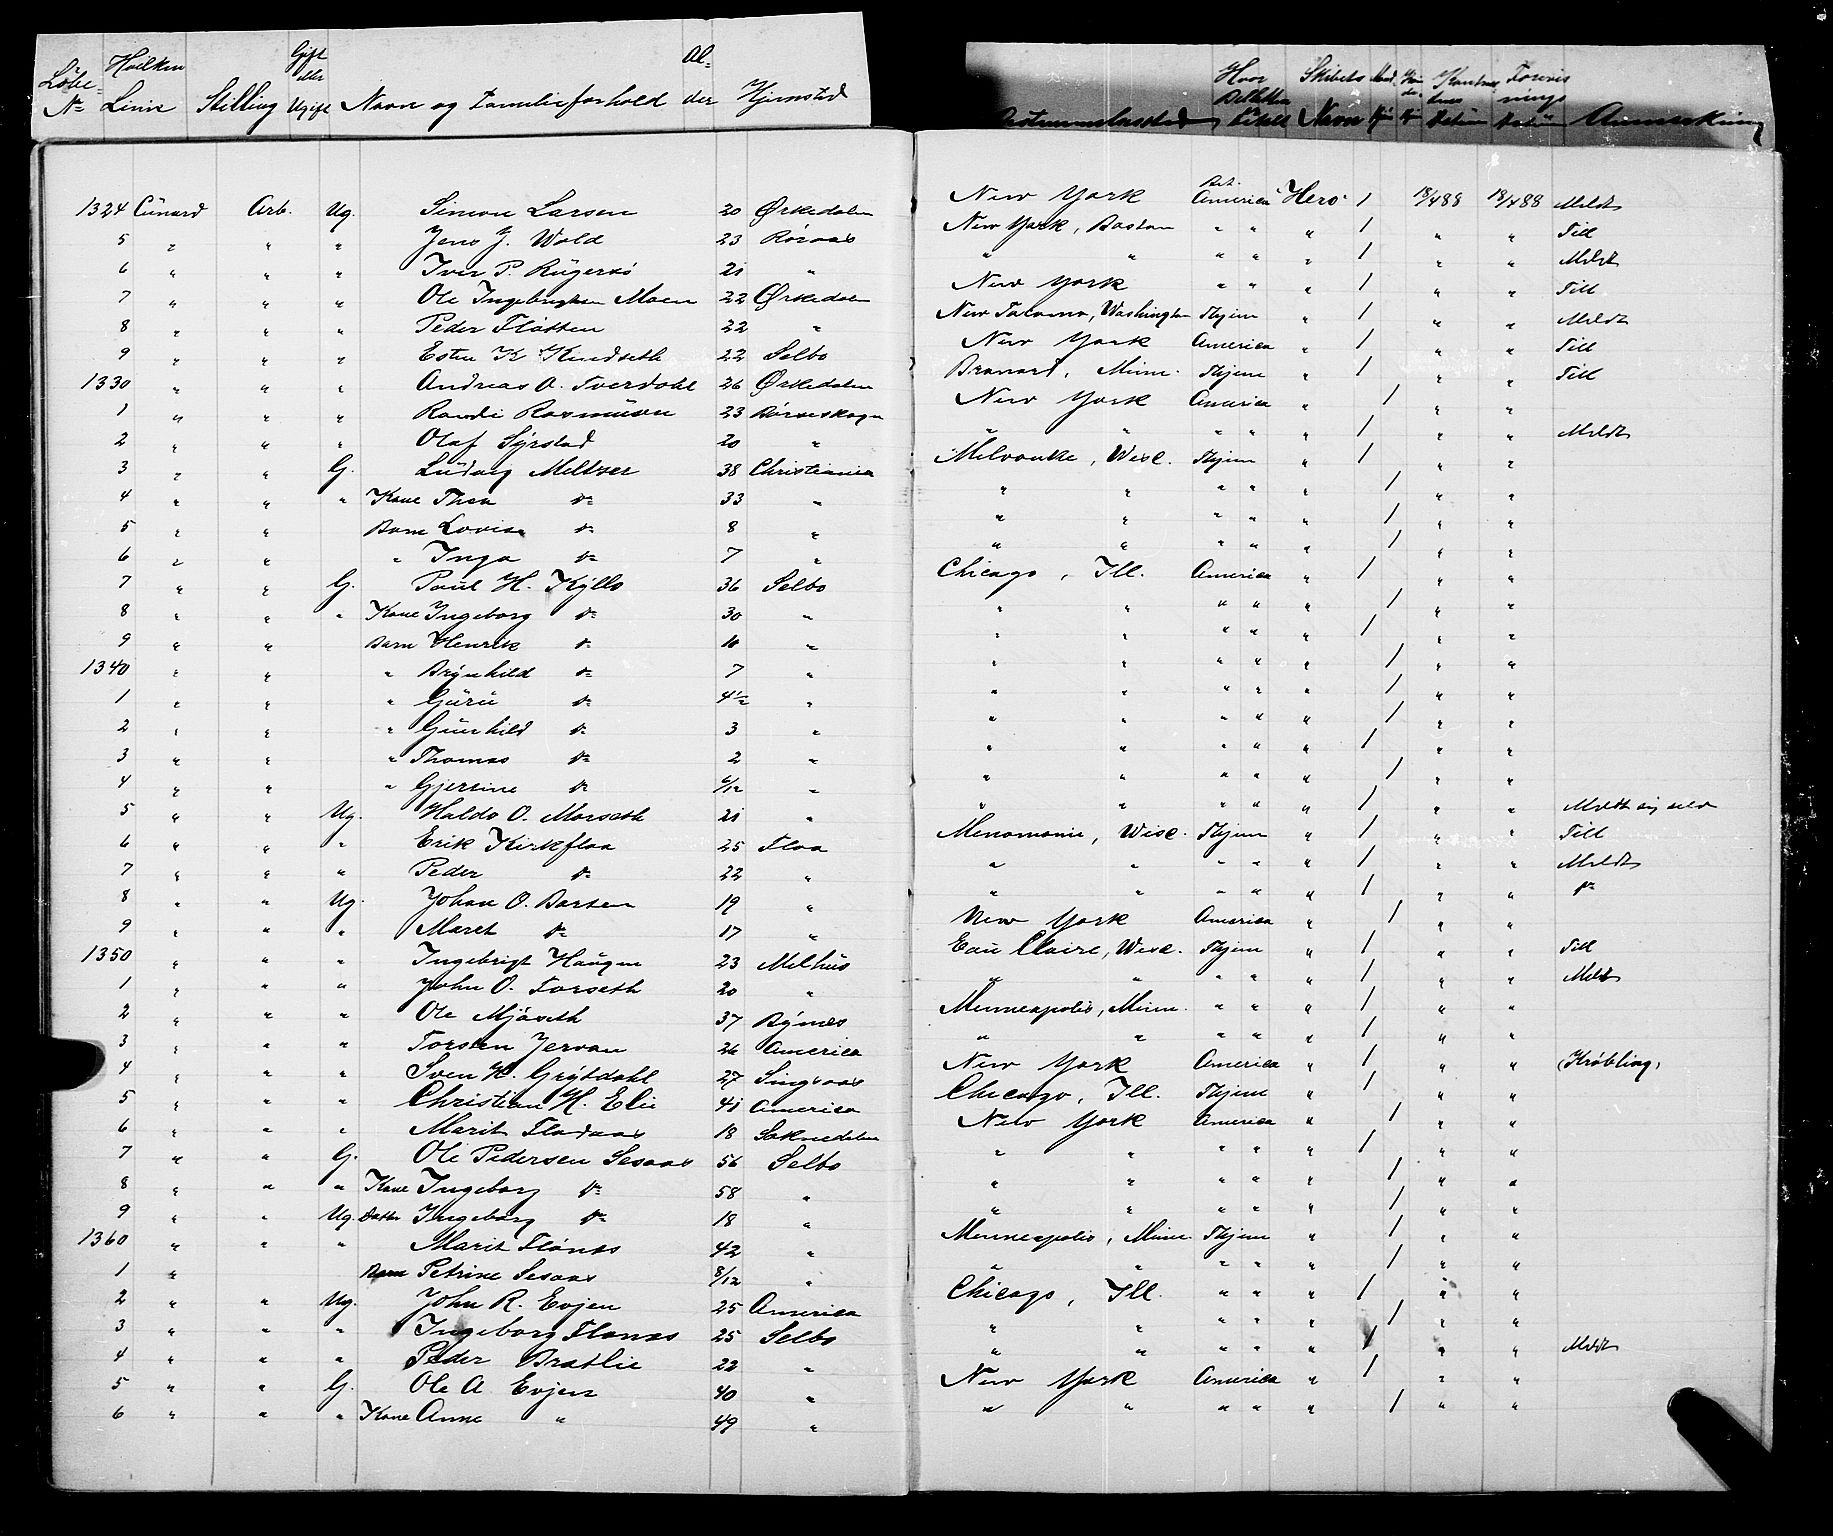 Løbe- Hvilken Gift Al-
No Linie Stilling eller Ugift Navn og Familieforhold der Hjemsted Bestemmelsessted Hvor Billetten betalt Skibets Navn Anmerkning
1324 Cunard Arb. Ug. Simon Larsen 20 Ørkedalen New York Bet. America Hero 1 18/488 18/488 Meldt
5 " " " Jens J. Wold 23 Røraas New York, Boston " " " 1 " " Till
6 " " " Iver P. 21 " " " " " " 1 " " Meldt
7 " " " Ole Ingebrigtsen Moen 22 Ørkedalen New York " " " 1 " " Till
8 " " " Peder Fløtten 22 " New Tacoma, Washington Hjem " 1 " " Meldt
9 " " " Esten K 22 Selbo New York America " 1 " " Till
1330 " " " Andreas O. Tverdahl 26 Ørkedalen Minn. Hjem " 1 " " Till
1 " " " Randi Rasmusen 23 Børseskogn New York America " 1 " "
2 " " " Olaf Syrstad 20 " " " " " " 1 " " Meldt
3 " " G. Ludvig Meltzer 38 Christiania Milvauke, Wisc. Hjem " 1 " "
4 " " " Kone Thea do 33 " " " " " " 1 " "
5 " " Barn Lovise do 8 " " " " " " 1 " "
6 " " " Inga do 7 " " " " " " 1 " "
7 " " G. Paul H. Kyllo 36 Selbo Chicago, Ill. America " 1 " "
8 " " " Kone Ingeborg do 30 " " " " " " 1 " "
9 " " Barn Henrik do 10 " " " " " " 1 " "
1340 " " " Brynhild do 7 " " " " " " 1 " "
1 " " " Guru do 4½ " " " " " " 1 " "
2 " " " Gunhild do 3 " " " " " " 1 " "
3 " " " Thomas do 2 " " " " " " 1 " "
4 " " " Gjertine do 6/12 " " " " " " 1 " "
5 " " Ug. Haldo O. Marseth 21 " " " " " " 1 " " Meldt sig selv
6 " " " Erik Kirkflaa 25 Flaa Menomonie, Wisc. Hjem " 1 " " Till
7 " " " Peder do 22 " " " " " " 1 " " Meldt
8 " " Ug. Johan O. Barsen 19 " " " " " " 1 " " do
9 " " " Maret do 17 " New York America " 1 " "
1350 " " " Ingebrigt Haugen 23 Melhus Eau Claire, Wisc. Hjem " 1 " " Till
1 " " " John O. Forseth 20 " " " " " " 1 " " Meldt
2 " " " Ole Mjøseth 37 Bynes Minneapolis, Minn. " " " 1 " "
3 " " " Torsten Jervan 26 America " " " " " 1 " "
4 " " " Sven H. Grytdahl 27 Singsaas New York America " 1 " " (Krøbling)
5 " " " Christian H. Elie 41 America Chicago, Ill. Hjem " 1 " "
6 " " " Marit Fladaas 18 Soknedalen New York America " 1 " "
7 " " G. Ole Pedersen Sesaas 56 Selbo " " " " " 1 " "
8 " " " Kone Ingeborg do 58 " " " " " " 1 " "
9 " " Ug. Datter Ingeborg do 18 " " " " " " 1 " "
1360 " " " Marit Flønes 42 " Minneapolis, Minn Hjem " 1 " "
1 " Barn Petrine Sesaas 8/12 " " " " " " 1 " "
2 " " Ug. John R. Evjen 25 America Chicago, Ill. " " " 1 " "
3 " " " Ingeborg Flønes 25 Selbo " " " " " 1 " "
4 " " " Peder Bratlie 22 " " " " " " 1 " " Meldt
5 " " G. Ole A Evjen 40 " New York America " 1 " "
6 " " " Kone Anne " 49 " " " " " " 1 " "